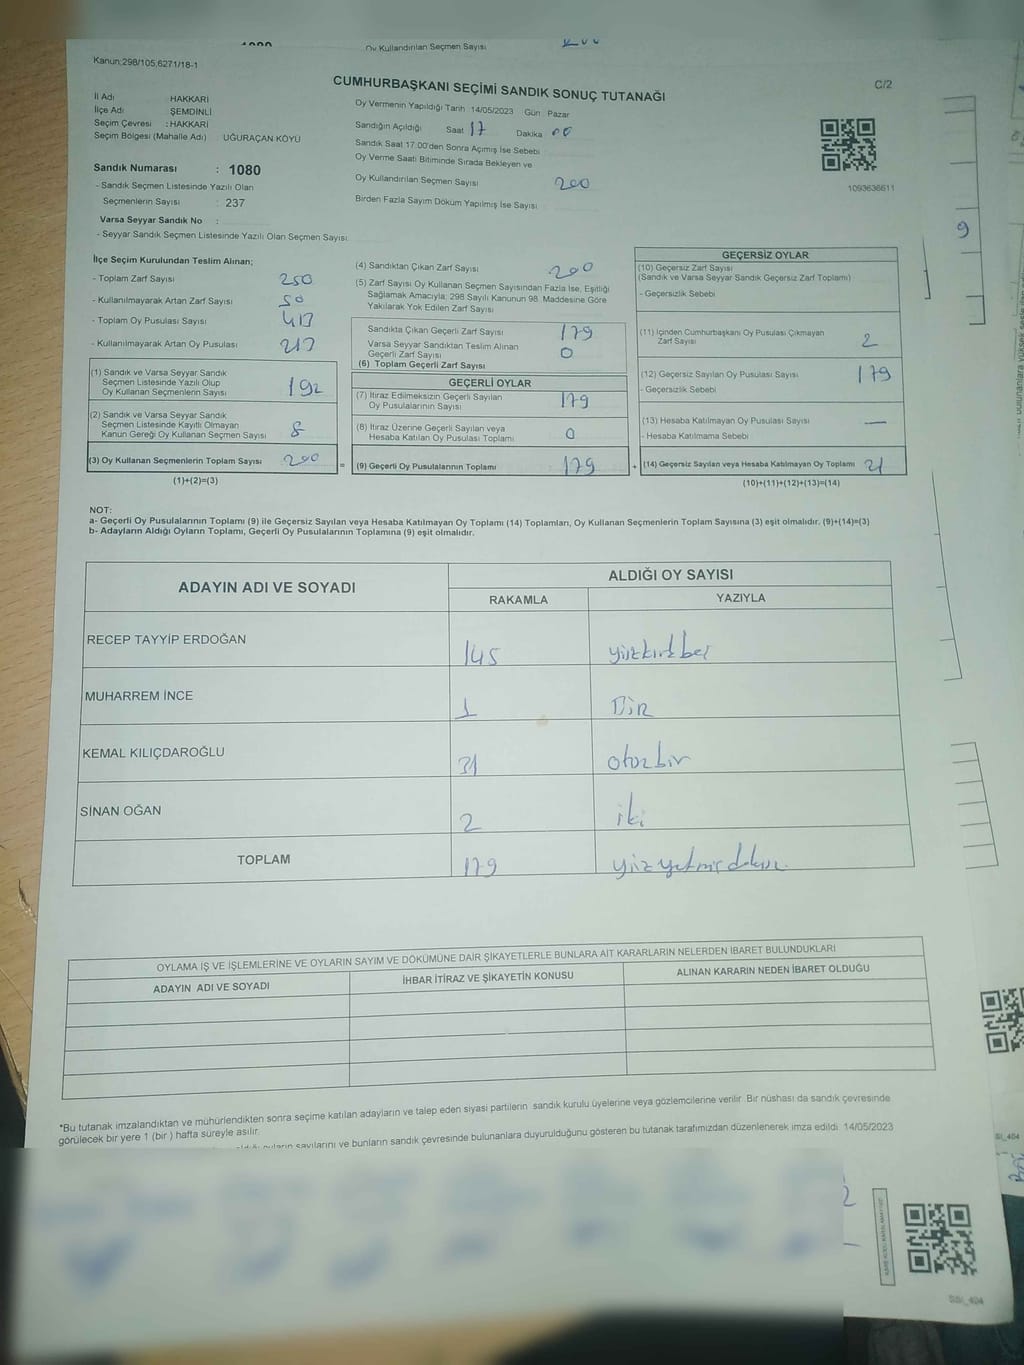 Oy Kullandırılan Seçmen Sayısı
Kanun:298/105,6271/18-1
C/2
CUMHURBAŞKANI SEÇİMİ SANDIK SONUÇ TUTANAĞI
İl Adı HAKKARİ
İlçe Adı ŞEMDİNLİ
Seçim Çevresi : HAKKARİ
Seçim Bölgesi (Mahalle Adı) UĞURAÇAN KÖYÜ
Oy Vermenin Yapıldığı Tarih 14/05/2023 Gün Pazar
Sandığın Açıldığı Saat 17 Dakika 00
Sandık Saat 17:00'den Sonra Açımış İse Sebebi
Oy Verme Saati Bitiminde Sırada Bekleyen ve
Oy Kullandırılan Seçmen Sayısı 200
Birden Fazla Sayım Döküm Yapılmış İse Sayısı
1093636611
Sandık Numarası : 1080
- Sandık Seçmen Listesinde Yazılı Olan
Seçmenlerin Sayısı : 237
Varsa Seyyar Sandık No :
- Seyyar Sandık Seçmen Listesinde Yazılı Olan Seçmen Sayısı
İlçe Seçim Kurulundan Teslim Alınan;
- Toplam Zarf Sayısı 250
- Kullanılmayarak Artan Zarf Sayısı 50
- Toplam Oy Pusulası Sayısı 413
- Kullanılmayarak Artan Oy Pusulası 213
(1) Sandık ve Varsa Seyyar Sandık
Seçmen Listesinde Yazılı Olup
Oy Kullanan Seçmenlerin Sayısı 192
(2) Sandık ve Varsa Seyyar Sandık
Seçmen Listesinde Kayıtlı Olmayan
Kanun Gereği Oy Kullanan Seçmen Sayısı 8
(3) Oy Kullanan Seçmenlerin Toplam Sayısı 200
(1)+(2)=(3)
(4) Sandıktan Çıkan Zarf Sayısı 200
(5) Zarf Sayısı Oy Kullanan Seçmen Sayısından Fazla İse, Eşitliği
Sağlamak Amacıyla; 298 Sayılı Kanunun 98. Maddesine Göre
Yakılarak Yok Edilen Zarf Sayısı
Sandıkta Çıkan Geçerli Zarf Sayısı 179
Varsa Seyyar Sandıktan Teslim Alınan
Geçerli Zarf Sayısı 0
(6) Toplam Geçerli Zarf Sayısı
GEÇERLİ OYLAR
(7) İtiraz Edilmeksizin Geçerli Sayılan
Oy Pusulalarının Sayısı 179
(8) İtiraz Üzerine Geçerli Sayılan veya
Hesaba Katılan Oy Pusulası Toplamı 0
= (9) Geçerli Oy Pusulalarının Toplamı 179
GEÇERSİZ OYLAR
(10) Geçersiz Zarf Sayısı
(Sandık ve Varsa Seyyar Sandık Geçersiz Zarf Toplamı)
- Geçersizlik Sebebi
(11) İçinden Cumhurbaşkanı Oy Pusulası Çıkmayan
Zarf Sayısı 2
(12) Geçersiz Sayılan Oy Pusulası Sayısı 179
- Geçersizlik Sebebi
(13) Hesaba Katılmayan Oy Pusulası Sayısı —
- Hesaba Katılmama Sebebi
+ (14) Geçersiz Sayılan veya Hesaba Katılmayan Oy Toplamı 21
(10)+(11)+(12)+(13)=(14)
NOT:
a- Geçerli Oy Pusulalarının Toplamı (9) ile Geçersiz Sayılan veya Hesaba Katılmayan Oy Toplamı (14) Toplamları, Oy Kullanan Seçmenlerin Toplam Sayısına (3) eşit olmalıdır. (9)+(14)=(3)
b- Adayların Aldığı Oyların Toplamı, Geçerli Oy Pusulalarının Toplamına (9) eşit olmalıdır.
ADAYIN ADI VE SOYADI ALDIĞI OY SAYISI
RAKAMLA YAZIYLA
RECEP TAYYİP ERDOĞAN 145 yüzkırkbeş
MUHARREM İNCE 1 Bir
KEMAL KILIÇDAROĞLU 31 otuzbir
SİNAN OĞAN 2 iki
TOPLAM 179 yüzyetmişdokuz
OYLAMA İŞ VE İŞLEMLERİNE VE OYLARIN SAYIM VE DÖKÜMÜNE DAİR ŞİKAYETLERLE BUNLARA AİT KARARLARIN NELERDEN İBARET BULUNDUKLARI
ADAYIN ADI VE SOYADI İHBAR İTİRAZ VE ŞİKAYETİN KONUSU ALINAN KARARIN NEDEN İBARET OLDUĞU
*Bu tutanak imzalandıktan ve mühürlendikten sonra seçime katılan adayların ve talep eden siyasi partilerin sandık kurulu üyelerine veya gözlemcilerine verilir. Bir nüshası da sandık çevresinde
görülecek bir yere 1 (bir ) hafta süreyle asılır.
sayılarını ve bunların sandık çevresinde bulunanlara duyurulduğunu gösteren bu tutanak tarafımızdan düzenlenerek imza edildi. 14/05/2023
SSİ_404